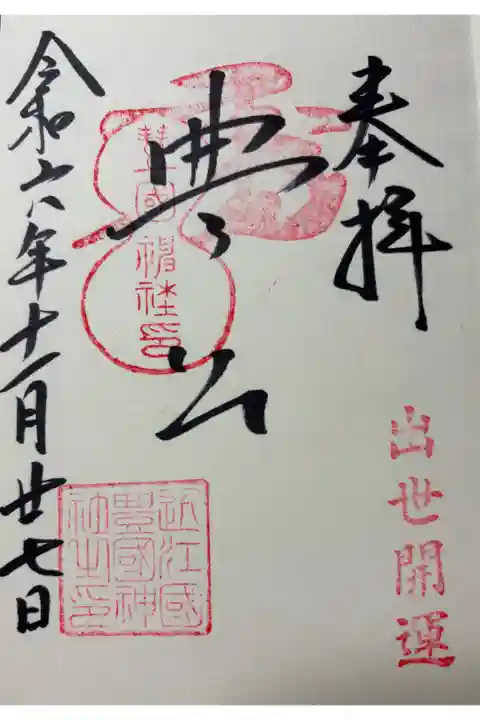 奉拝
出世開運
豊公
豊國神社印
近江國
豐國神
社之印
令和六年十一月廿七日